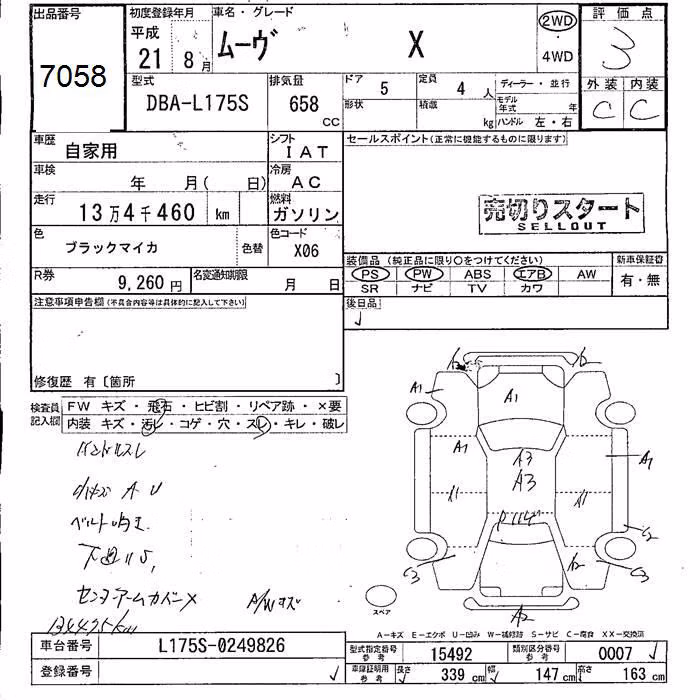 出品番号
7058
初度登録年月
平成
21 8月
車名・グレード
ムーヴ X
2WD
4WD
評価点
3
外装 内装
C C
型式
DBA-L175S
排気量
658
CC
ドア 5
形状
定員 4 人
積載 kg
ディーラー・並行
モデル年式 年
ハンドル 左・右
車歴
自家用
シフト
IAT
車検
年 月( 日)
冷房
AC
走行
13万4千460 km
燃料
ガソリン
色
ブラックマイカ
色替
色コード
X06
R券
9,260円
名変通知期限
月 日
セールスポイント(正常に機能するものに限ります)
売切りスタート
SELLOUT
装備品(純正品に限り○をつけてください)
PS PW ABS エアB AW
SR ナビ TV カワ
新車保証書
有・無
後日品
注意事項申告欄(不具合内容等は具体的に記入して下さい)
修復歴 有〔箇所 〕
検査員記入欄
FW キズ・飛石・ヒビ割・リペア跡・×要
内装 キズ・汚レ・コゲ・穴・スレ・キレ・破レ
ハンドルスレ
A U
ベルト
センターアームカバー×
A/Wキズ
134475km
A1
A1
A1
A1
A3
A3
A1
A1
C2
C3
C3
A2
スペア
A-キズ E-エクボ U-凹み W-補修跡 S-サビ C-腐食 XX-交換済
車台番号
L175S-0249826
登録番号
型式指定番号 参考
15492
類別区分番号 参考
0007
車庫証明用 参考
長さ 339 cm
幅 147 cm
高さ 163 cm